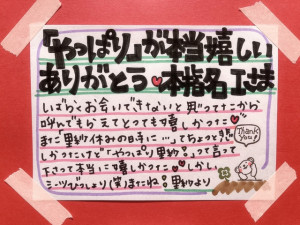 「やっぱり」が本当嬉しい
ありがとう 本指名Iさま
しばらくお会いできないと思ってたから
呼んでもらえてとっても嬉しかった
まだ「里紗休みの時に…」ってちょっと
しかったけど「やっぱり里紗。」って言って
下さって本当に嬉しかった しかし
シーツびっしょり(笑)またね。里紗より
Thank
You!